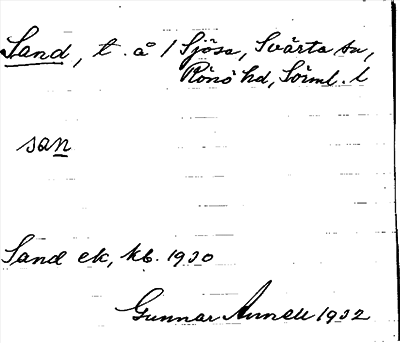 Sand, t. å 1 Sjösa, Svärta sn,
Rönö hd, Söiml. l
san
Sand ek, kb. 1930
Gunnar Annell 1932